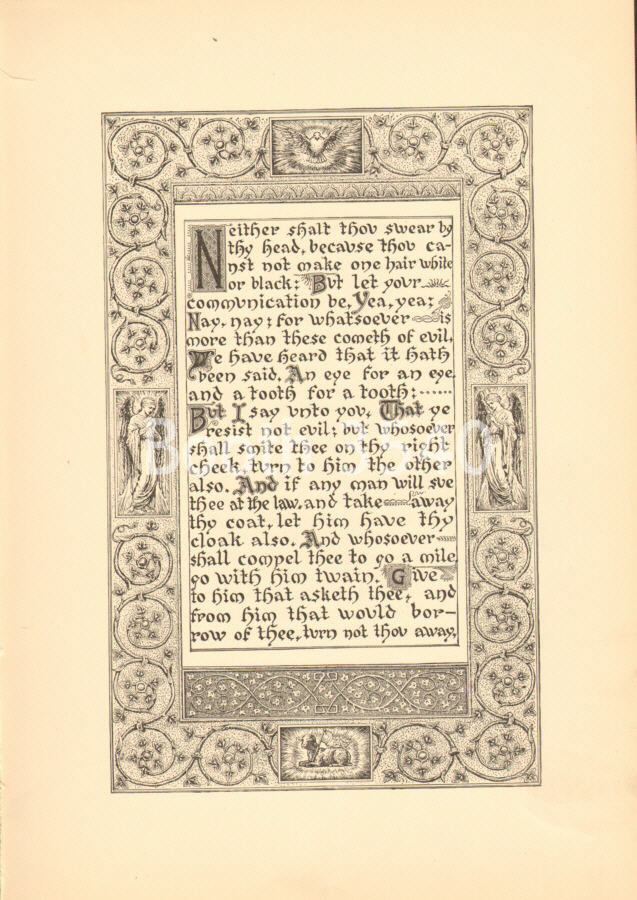 Neither shalt thov swear by
thy head, becavse thov ca-
nst not make one hair white
or black: Bvt let yovr
commvnication be, Yea, yea;
Nay, nay; for whatsoever is
more than these cometh of evil.
Ye have heard that it hath
been said, An eye for an eye,
and a tooth for a tooth:
Bvt I say vnto yov, That ye
resist not evil; bvt whosoever
shall smite thee on thy right
cheek, tvrn to him the other
also. And if any man will sve
thee at the law, and take away
thy coat, let him have thy
cloak also. And whosoever
shall compel thee to go a mile,
go with him twain. Give
to him that asketh thee, and
from him that wovld bor-
row of thee, tvrn not thov away.